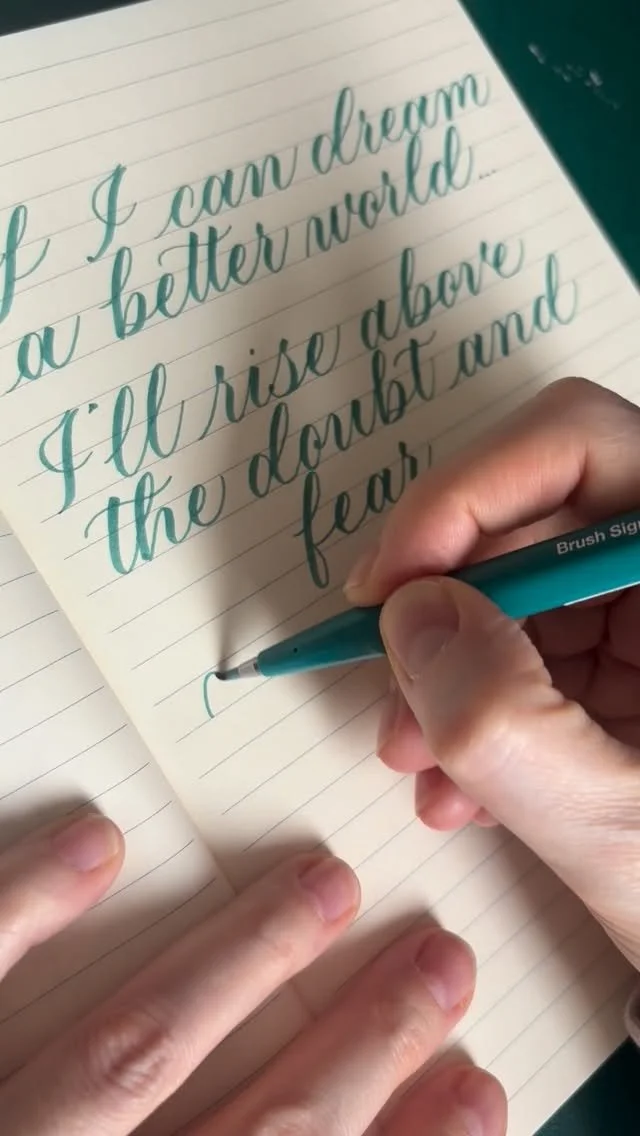 f I can dream
a better world...
I'll rise above
the doubt and
fear
Brush Sign